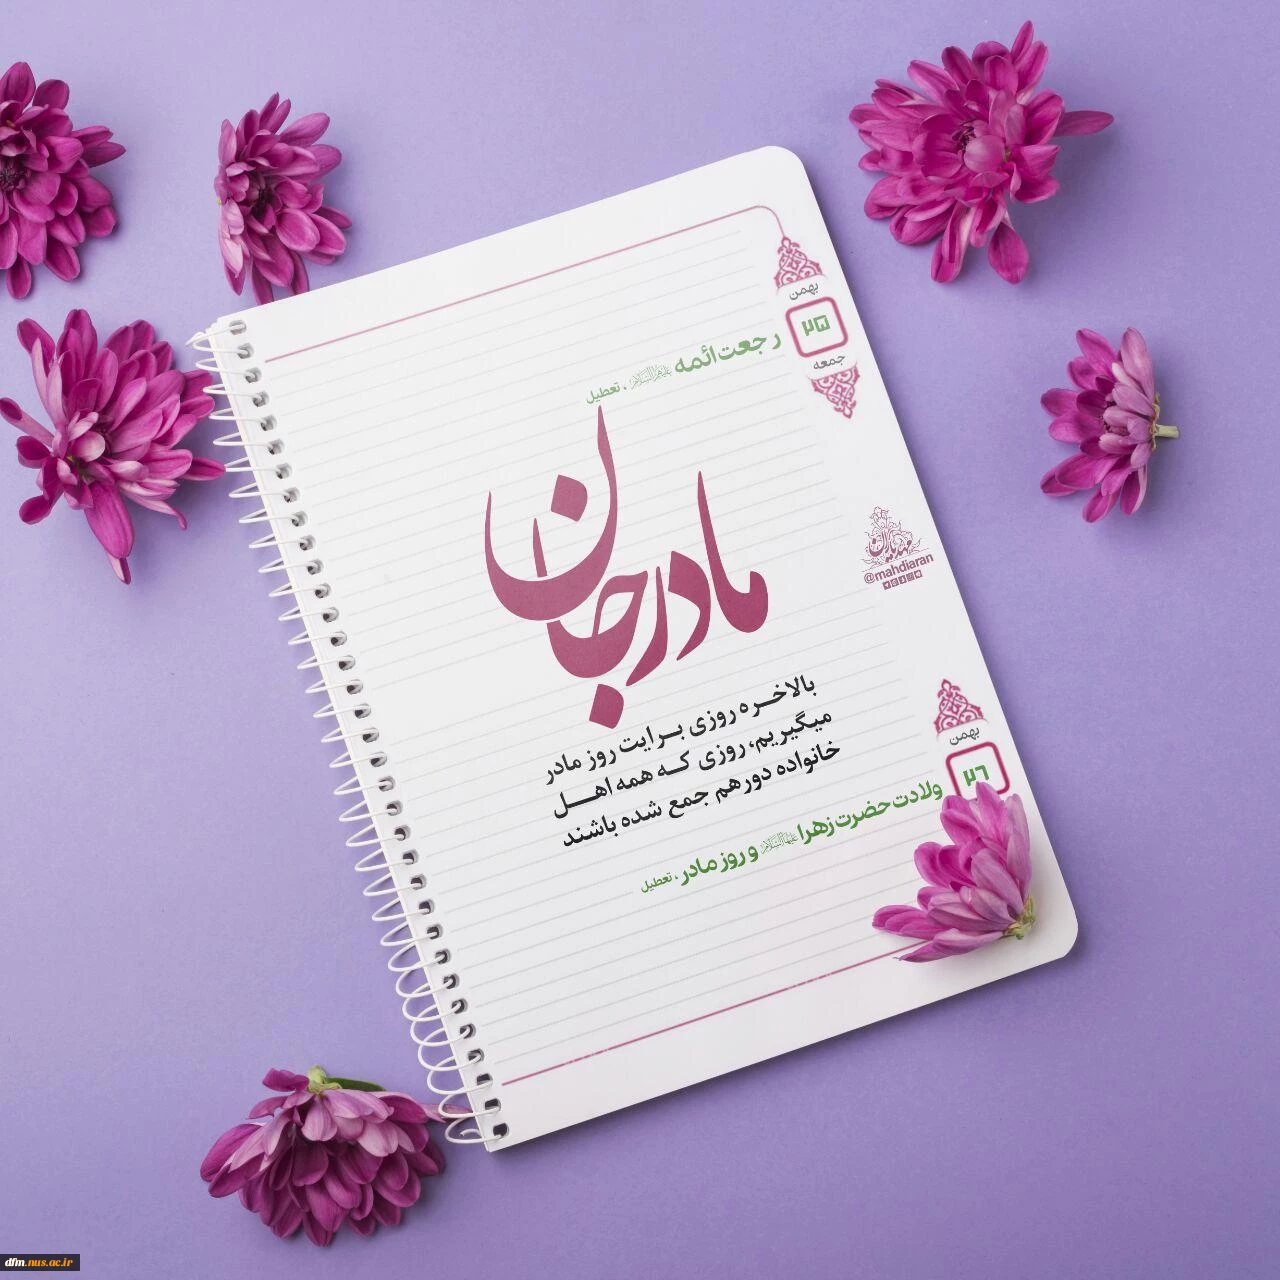 بهمن
۲۵
جمعه
رجعت ائمه علیهم‌السلام ، تعطیل
مادر جان
مهدیاران
@mahdiaran
بالاخره روزی برایت روز مادر
میگیریم، روزی که همه اهل
خانواده دورهم جمع شده باشند
بهمن
۲۶
ولادت حضرت زهرا علیهاالسلام و روز مادر ، تعطیل
dfm.nus.ac.ir